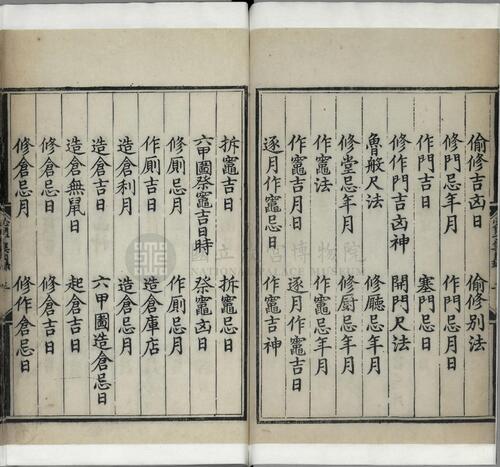 偷修吉凶日　偷修别法
修門忌年月　作門忌月日
作門吉日　塞門忌日
修作門吉凶神　開門尺法
魯般尺法　修廳忌年月
修堂忌年月　修厨忌年月
作竈法　作竈忌年月
作竈吉月日　逐月作竈吉日
逐月作竈忌日　作竈吉神
拆竈吉日　拆竈忌日
六甲圖祭竈吉日時　祭竈凶日
修厠忌月　作厠忌月
作厠吉日　造倉庫店
造倉利月　造倉忌月
造倉吉日　六甲圖造倉忌日
造倉無鼠日　起倉吉日
修倉忌日　修倉吉日
修倉忌月　修作倉忌日
國立故宮博物院